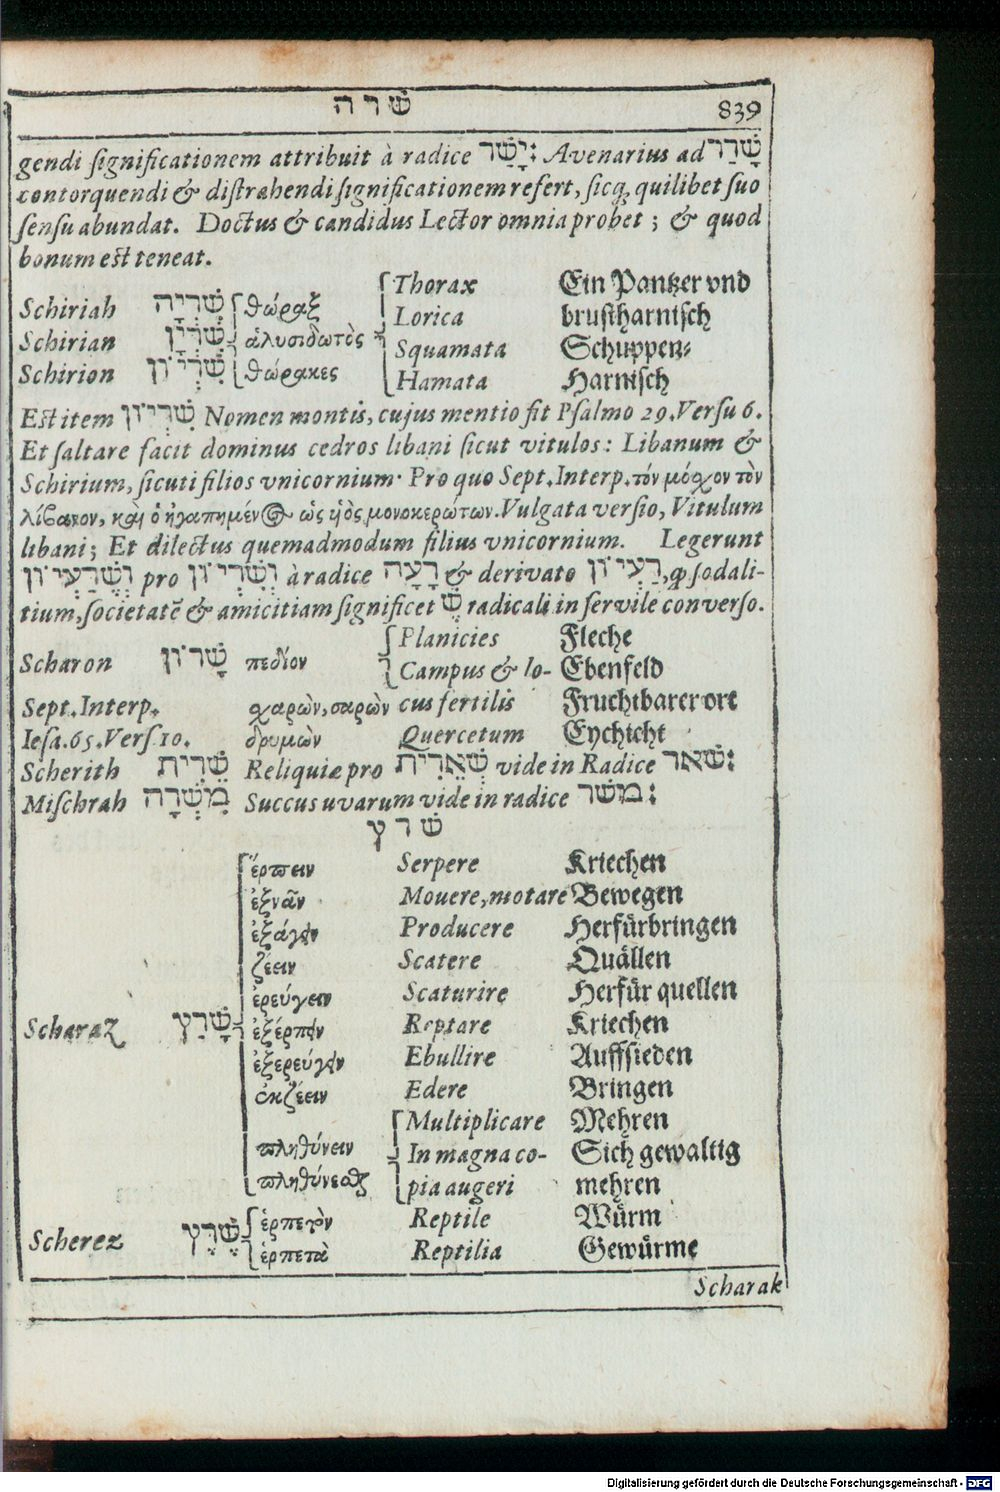 שׁרה 839
gendi significationem attribuit à radice יָשַׁר׃ Avenarius ad שָׁרַר
contorquendi & distrahendi significationem refert, sicq́, quilibet suo
sensu abundat. Doctus & candidus Lector omnia probet; & quod
bonum est teneat.
Schiriah שִׁרְיָה θώραξ Thorax Ein Pantzer vnd
Lorica brustharnisch
Schirian שִׁרְיָן ἁλυσιδωτὸς Squamata Schuppen-
Schirion שִׁרְיוֹן θώρακες Hamata Harnisch
Est item שִׂרְיוֹן Nomen montis, cujus mentio fit Psalmo 29. Versu 6.
Et saltare facit dominus cedros libani sicut vitulos: Libanum &
Schirium, sicuti filios vnicornium. Pro quo Sept. Interp. τόν μόσχον τὸν
λίβανον, καὶ ὁ ἠγαπημένος ὡς ὑὸς μονοκερώτων. Vulgata versio, Vitulum
libani; Et dilectus quemadmodum filius vnicornium. Legerunt
וְשֶׁרַעְיוֹן pro וְשִׂרְיוֹן à radice רָעָה & derivato רַעְיוֹן, qp sodali-
tium, societatẽ & amicitiam significet שֶׁ radicali in servile converso.
Scharon שָׁרוֹן πεδίον Planicies Fleche
Campus & lo- Ebenfeld
Sept. Interp. χαρὼν, σαρὼν cus fertilis Fruchtbarer ort
Iesa. 65. Vers. 10. δρυμὼν Quercetum Eychicht
Scherith שֵׁרִית Reliquiæ pro שְׁאֵרִית vide in Radice שׁאר׃
Mischrah מִשְׁרָה Succus uvarum vide in radice משׁר׃
שׁרץ
ἕρπειν Serpere Kriechen
ἐξνᾶν Mouere, motare Bewegen
ἐξάγειν Producere Herfürbringen
ζέειν Scatere Quällen
ἐρεύγειν Scaturire Herfür quellen
Scharaz שָׁרַץ ἐξέρπειν Reptare Kriechen
ἐξερεύγειν Ebullire Auffsieden
ἐκζέειν Edere Bringen
Multiplicare Mehren
πληθύνειν In magna co- Sich gewaltig
πληθύνεσθαι pia augeri mehren
Scherez שֶׁרֶץ ἑρπετὸν Reptile Würm
ἑρπετὰ Reptilia Gewürme
Scharak
Digitalisierung gefördert durch die Deutsche Forschungsgemeinschaft - DFG